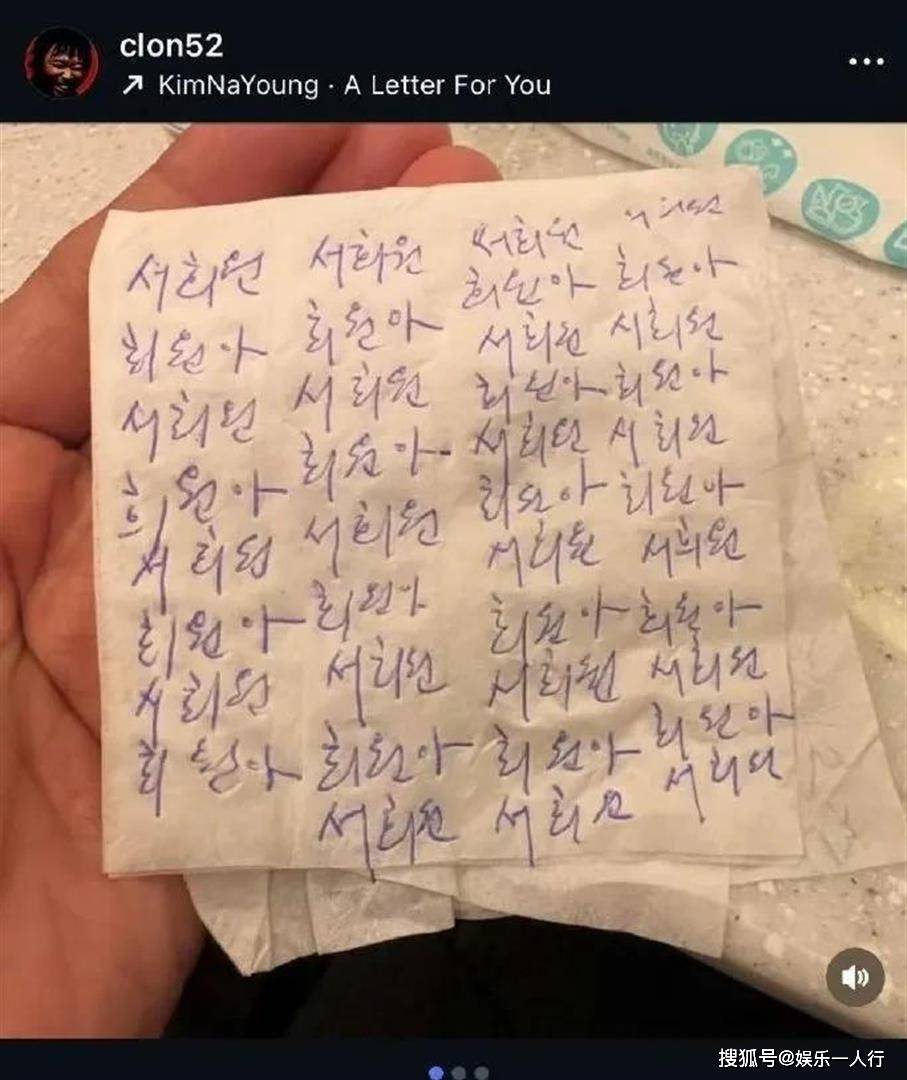 clon52
KimNaYoung · A Letter For You
서희원
희원아
서희원
희원아
서희원
희원아
서희원
희원아
서희원
희원아
서희원
희원아
서희원
희원아
서희원
희원아
서희원
서희원
희원아
서희원
희원아
서희원
희원아
서희원
희원아
서희원
희원아
서희원
서희원
희원아
서희원
희원아
서희원
희원아
서희원
희원아
서희원
희원아
서희원
搜狐号@娱乐一人行